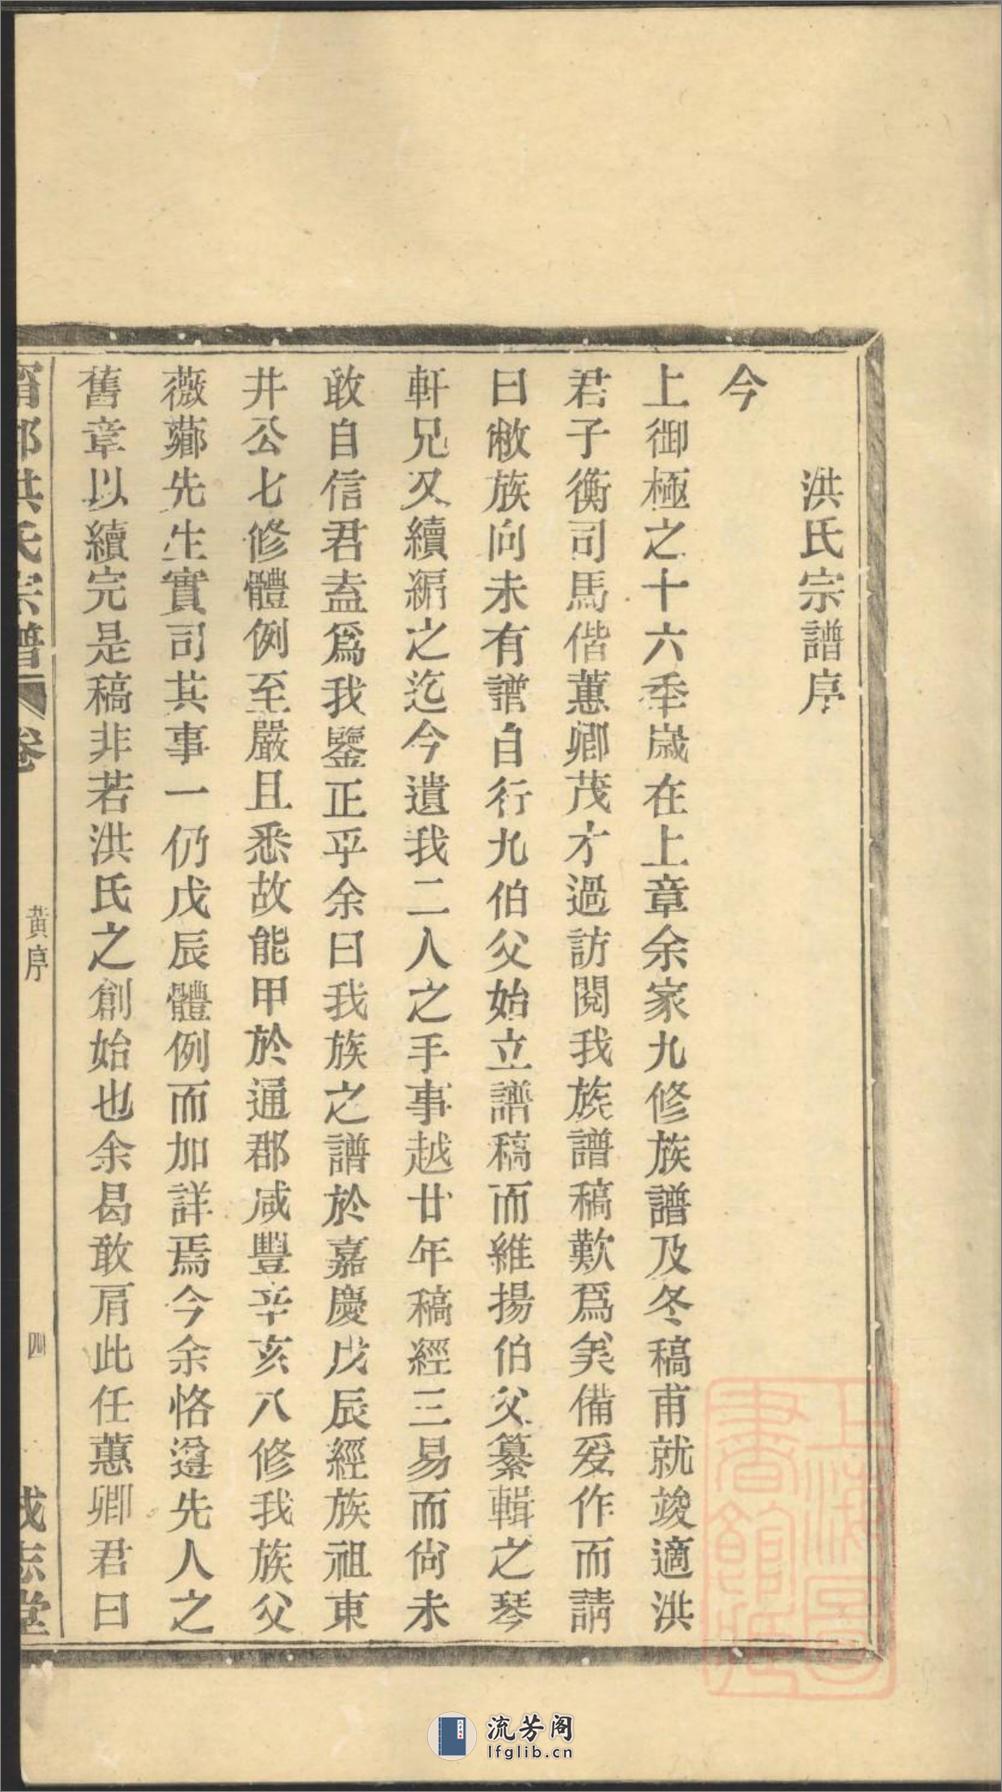 洪氏宗譜序
今
上御極之十六季歲在上章余家九修族譜及冬稿甫就竣適洪
君子衡司馬偕蕙卿茂才過訪閱我族譜稿歎爲矣備爰作而請
曰敝族向未有譜自行九伯父始立譜稿而維揚伯父纂輯之琴
軒兄又續編之迄今遺我二人之手事越廿年稿經三易而尙未
敢自信君盍爲我鑒正乎余曰我族之譜於嘉慶戊辰經族祖東
井公七修體例至嚴且悉故能甲於通郡咸豐辛亥八修我族父
薇薌先生實司其事一仍戊辰體例而加詳焉今余恪遵先人之
舊章以續完是稿非若洪氏之創始也余曷敢肩此任蕙卿君曰
洪氏宗譜
卷
黃序
四
成志堂
上海圖書館藏
流芳阁
lfglib.cn